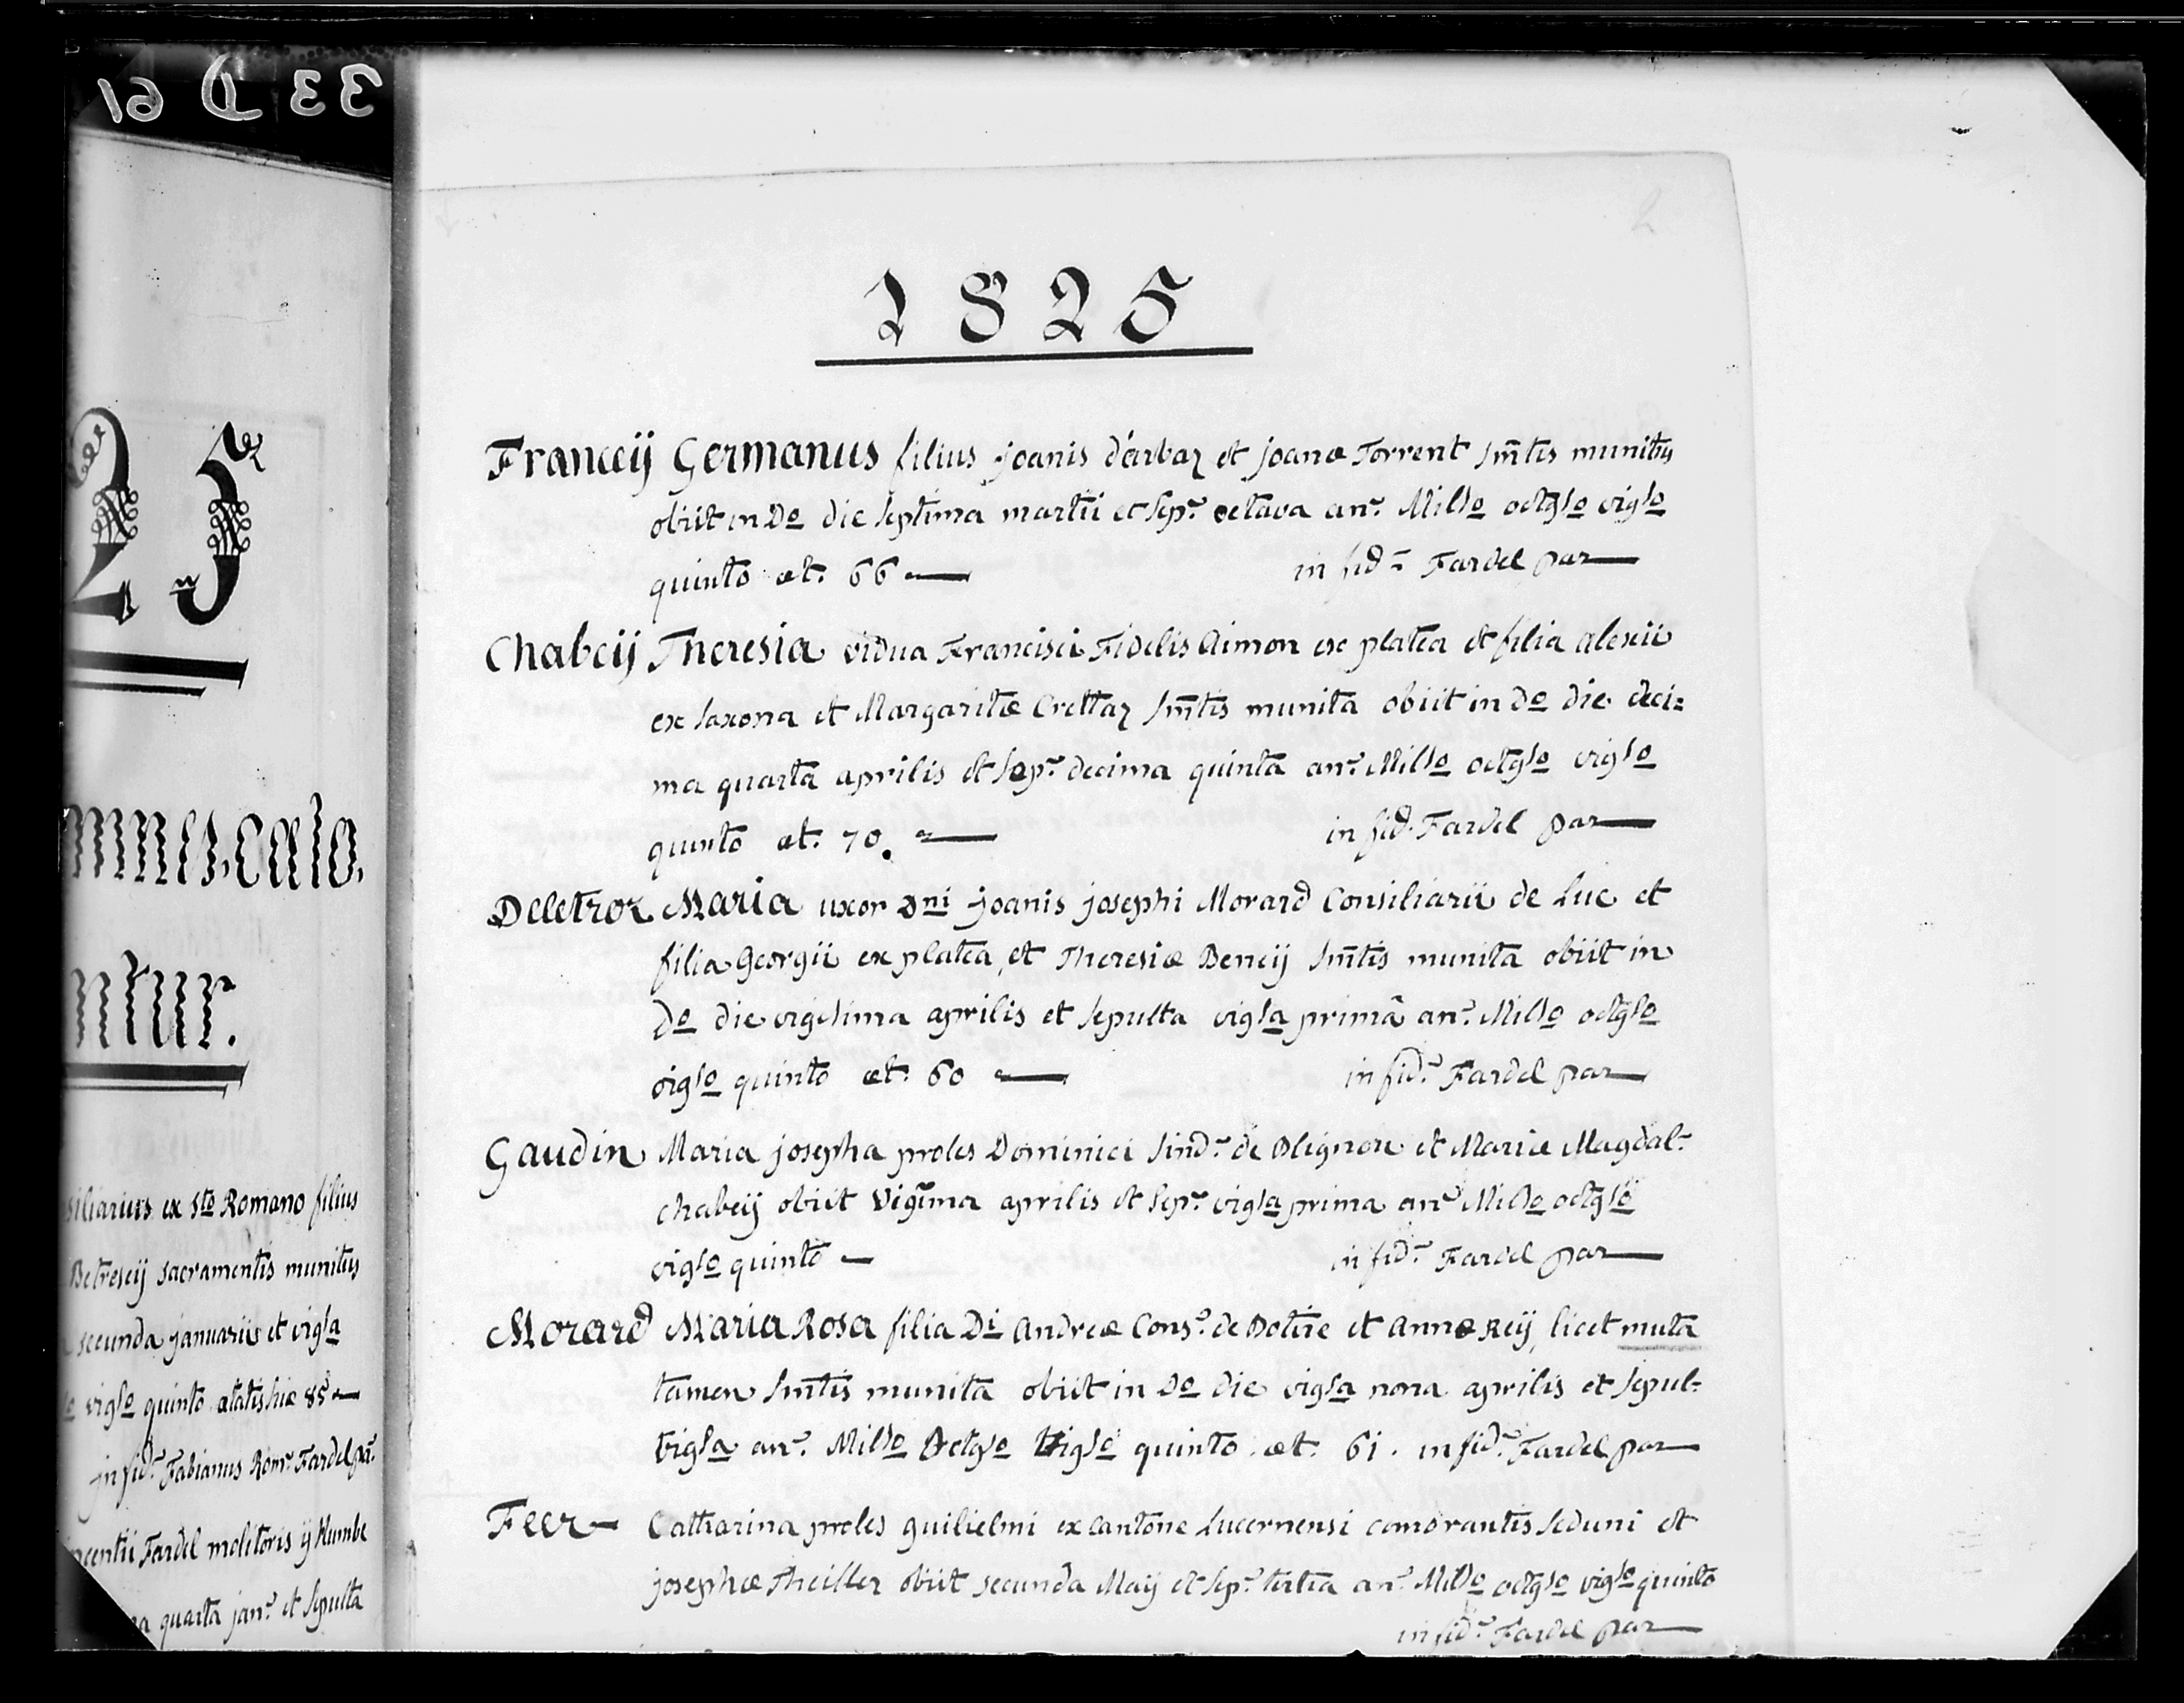 33 D 61
25
mnes, calo.
ntur.
siliarius ex Sto Romano filius
Betreseij sacramentis munitus
secunda januarii et vigsa
vigso quinto ætatis suæ 85
in fid. Fabianus Rom. Fardel par.
centii Fardel molitoris ij Humbe
quarta jan. et sepulta
2
1825
Franceij Germanus filius joanis d'arbaz et joanæ Torrent smtis munitus
obiit in Do die septima martii et sep. octava an. Millo octgso vigso
quinto æt. 66 in fid. Fardel par
Chabeij Theresia vidua Francisci Fidelis Aimon ex platea et filia alexii
ex saxona et Margaritæ Crettaz smtis munita obiit in Do die deci=
ma quarta aprilis et sep. decima quinta an. Millo octgso vigso
quinto æt. 70. in fid. Fardel par
Deletroz Maria uxor Dni joanis josephi Morard Consiliarii de Luc et
filia Georgii ex platea, et Theresiæ Beneij smtis munita obiit in
Do die vigesima aprilis et sepulta vigsa primâ an. Millo octgso
vigso quinto æt. 60 in fid. Fardel par
Gaudin Maria josepha proles Dominici sind. de Blignou et Mariæ Magdal.
chabeij obiit vigma aprilis et sep. vigsa prima an. Millo octgso
vigso quinto in fid. Fardel par
Morard Maria Rosa filia Di Andreæ Cons. de Botire et Annæ Reij, licet muta
tamen smtis munita obiit in Do die vigsa nona aprilis et sepul.
trigsa an. Millo Octgso vigso quinto æt. 61. in fid. Fardel par
Feer Catharina proles guilielmi ex cantone Lucernensi comorantis seduni et
josephæ Theiller obiit secunda Maij et sep. tertia an. Millo octgso vigso quinto
in fid. Fardel par